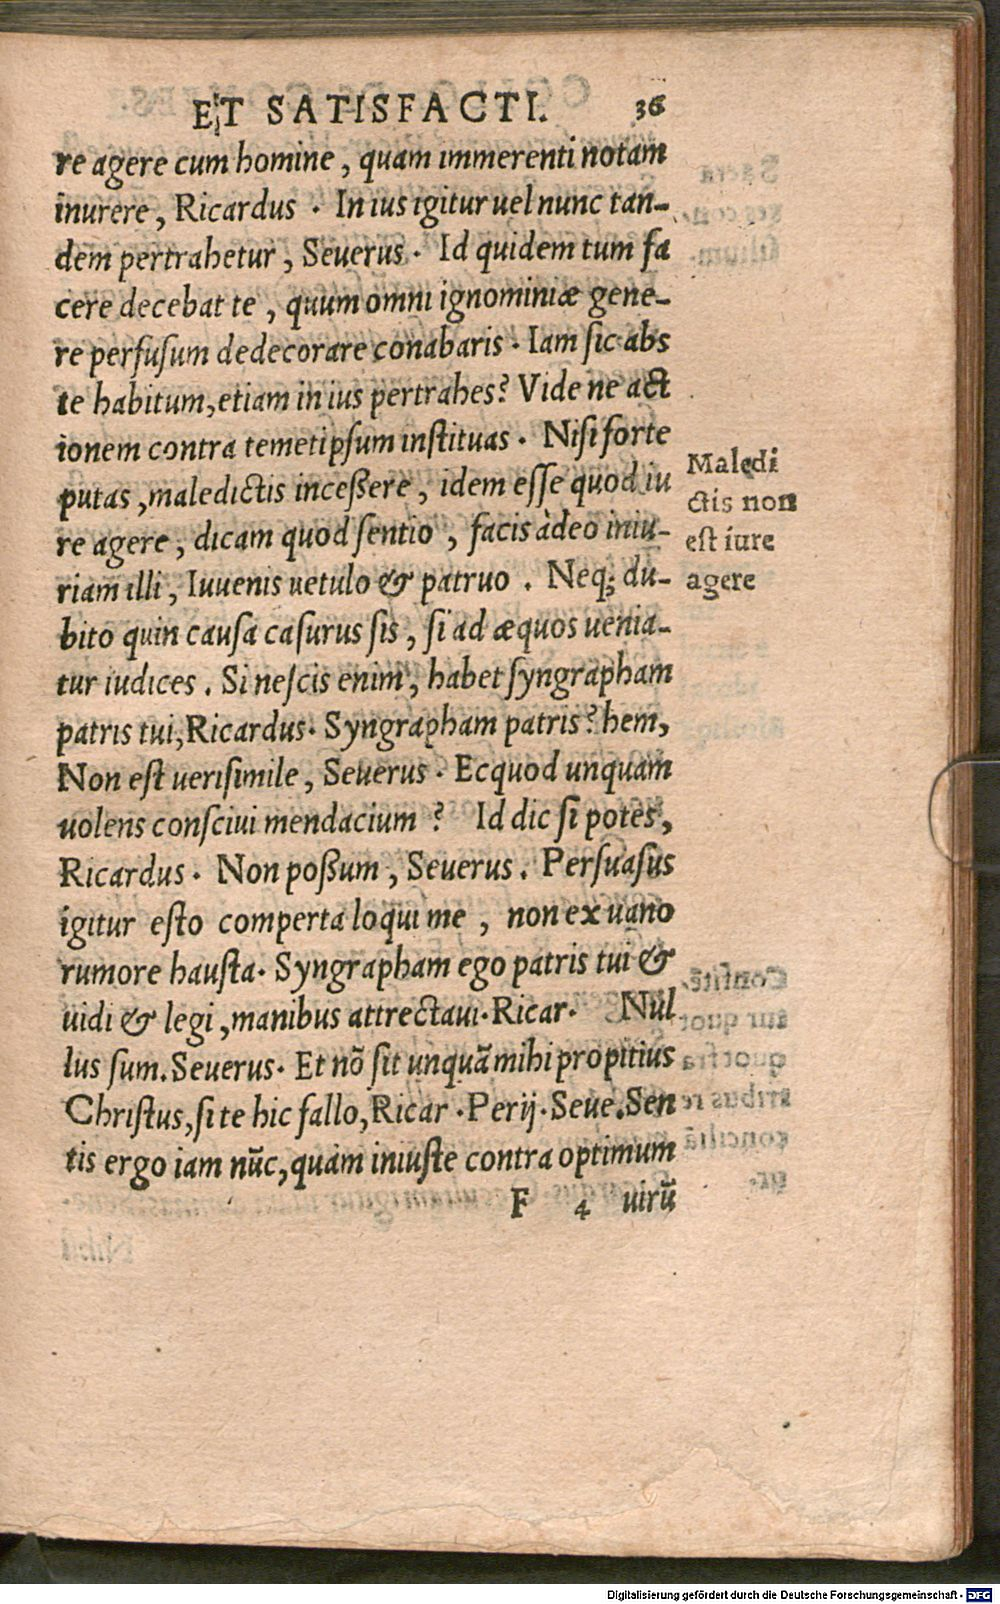 ET SATISFACTI. 36
re agere cum homine, quam immerenti notam
inurere, Ricardus. In ius igitur uel nunc tan-
dem pertrahetur, Seuerus. Id quidem tum fa
cere decebat te, quum omni ignominiæ gene-
re perfusum dedecorare conabaris. Iam sic abs
te habitum, etiam in ius pertrahes? Vide ne act
ionem contra temetipsum instituas. Nisi forte
putas, maledictis inceßere, idem esse quod iu
re agere, dicam quod sentio, facis àdeo iniu-
riam illi, Iuuenis uetulo & patruo. Neq; du-
bito quin causa casurus sis, si ad æquos uenia-
tur iudices. Si nescis enim, habet syngrapham
patris tui, Ricardus. Syngrapham patris? hem,
Non est uerisimile, Seuerus. Ecquod unquam
uolens consciui mendacium? Id dic si potes,
Ricardus. Non poßum, Seuerus. Persuasus
igitur esto comperta loqui me, non ex uano
rumore hausta. Syngrapham ego patris tui &
uidi & legi, manibus attrectaui. Ricar. Nul
lus sum. Seuerus. Et nõ sit unquã mihi propitius
Christus, si te hic fallo, Ricar. Perij. Seue. Sen
tis ergo iam nũc, quàm iniuste contra optimum
F 4 uirũ
Maledi
ctis non
est iure
agere
Digitalisierung gefördert durch die Deutsche Forschungsgemeinschaft - DFG